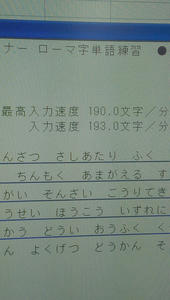 ナー ローマ字単語練習
最高入力速度 190.0文字／分
入力速度 193.0文字／分
んざつ さしあたり ふく
ちんもく あまがえる す
がい そんざい こうりてき
うせい ほうこう いずれに
かう どうい おうふく く
ん よくげつ どうかん そ